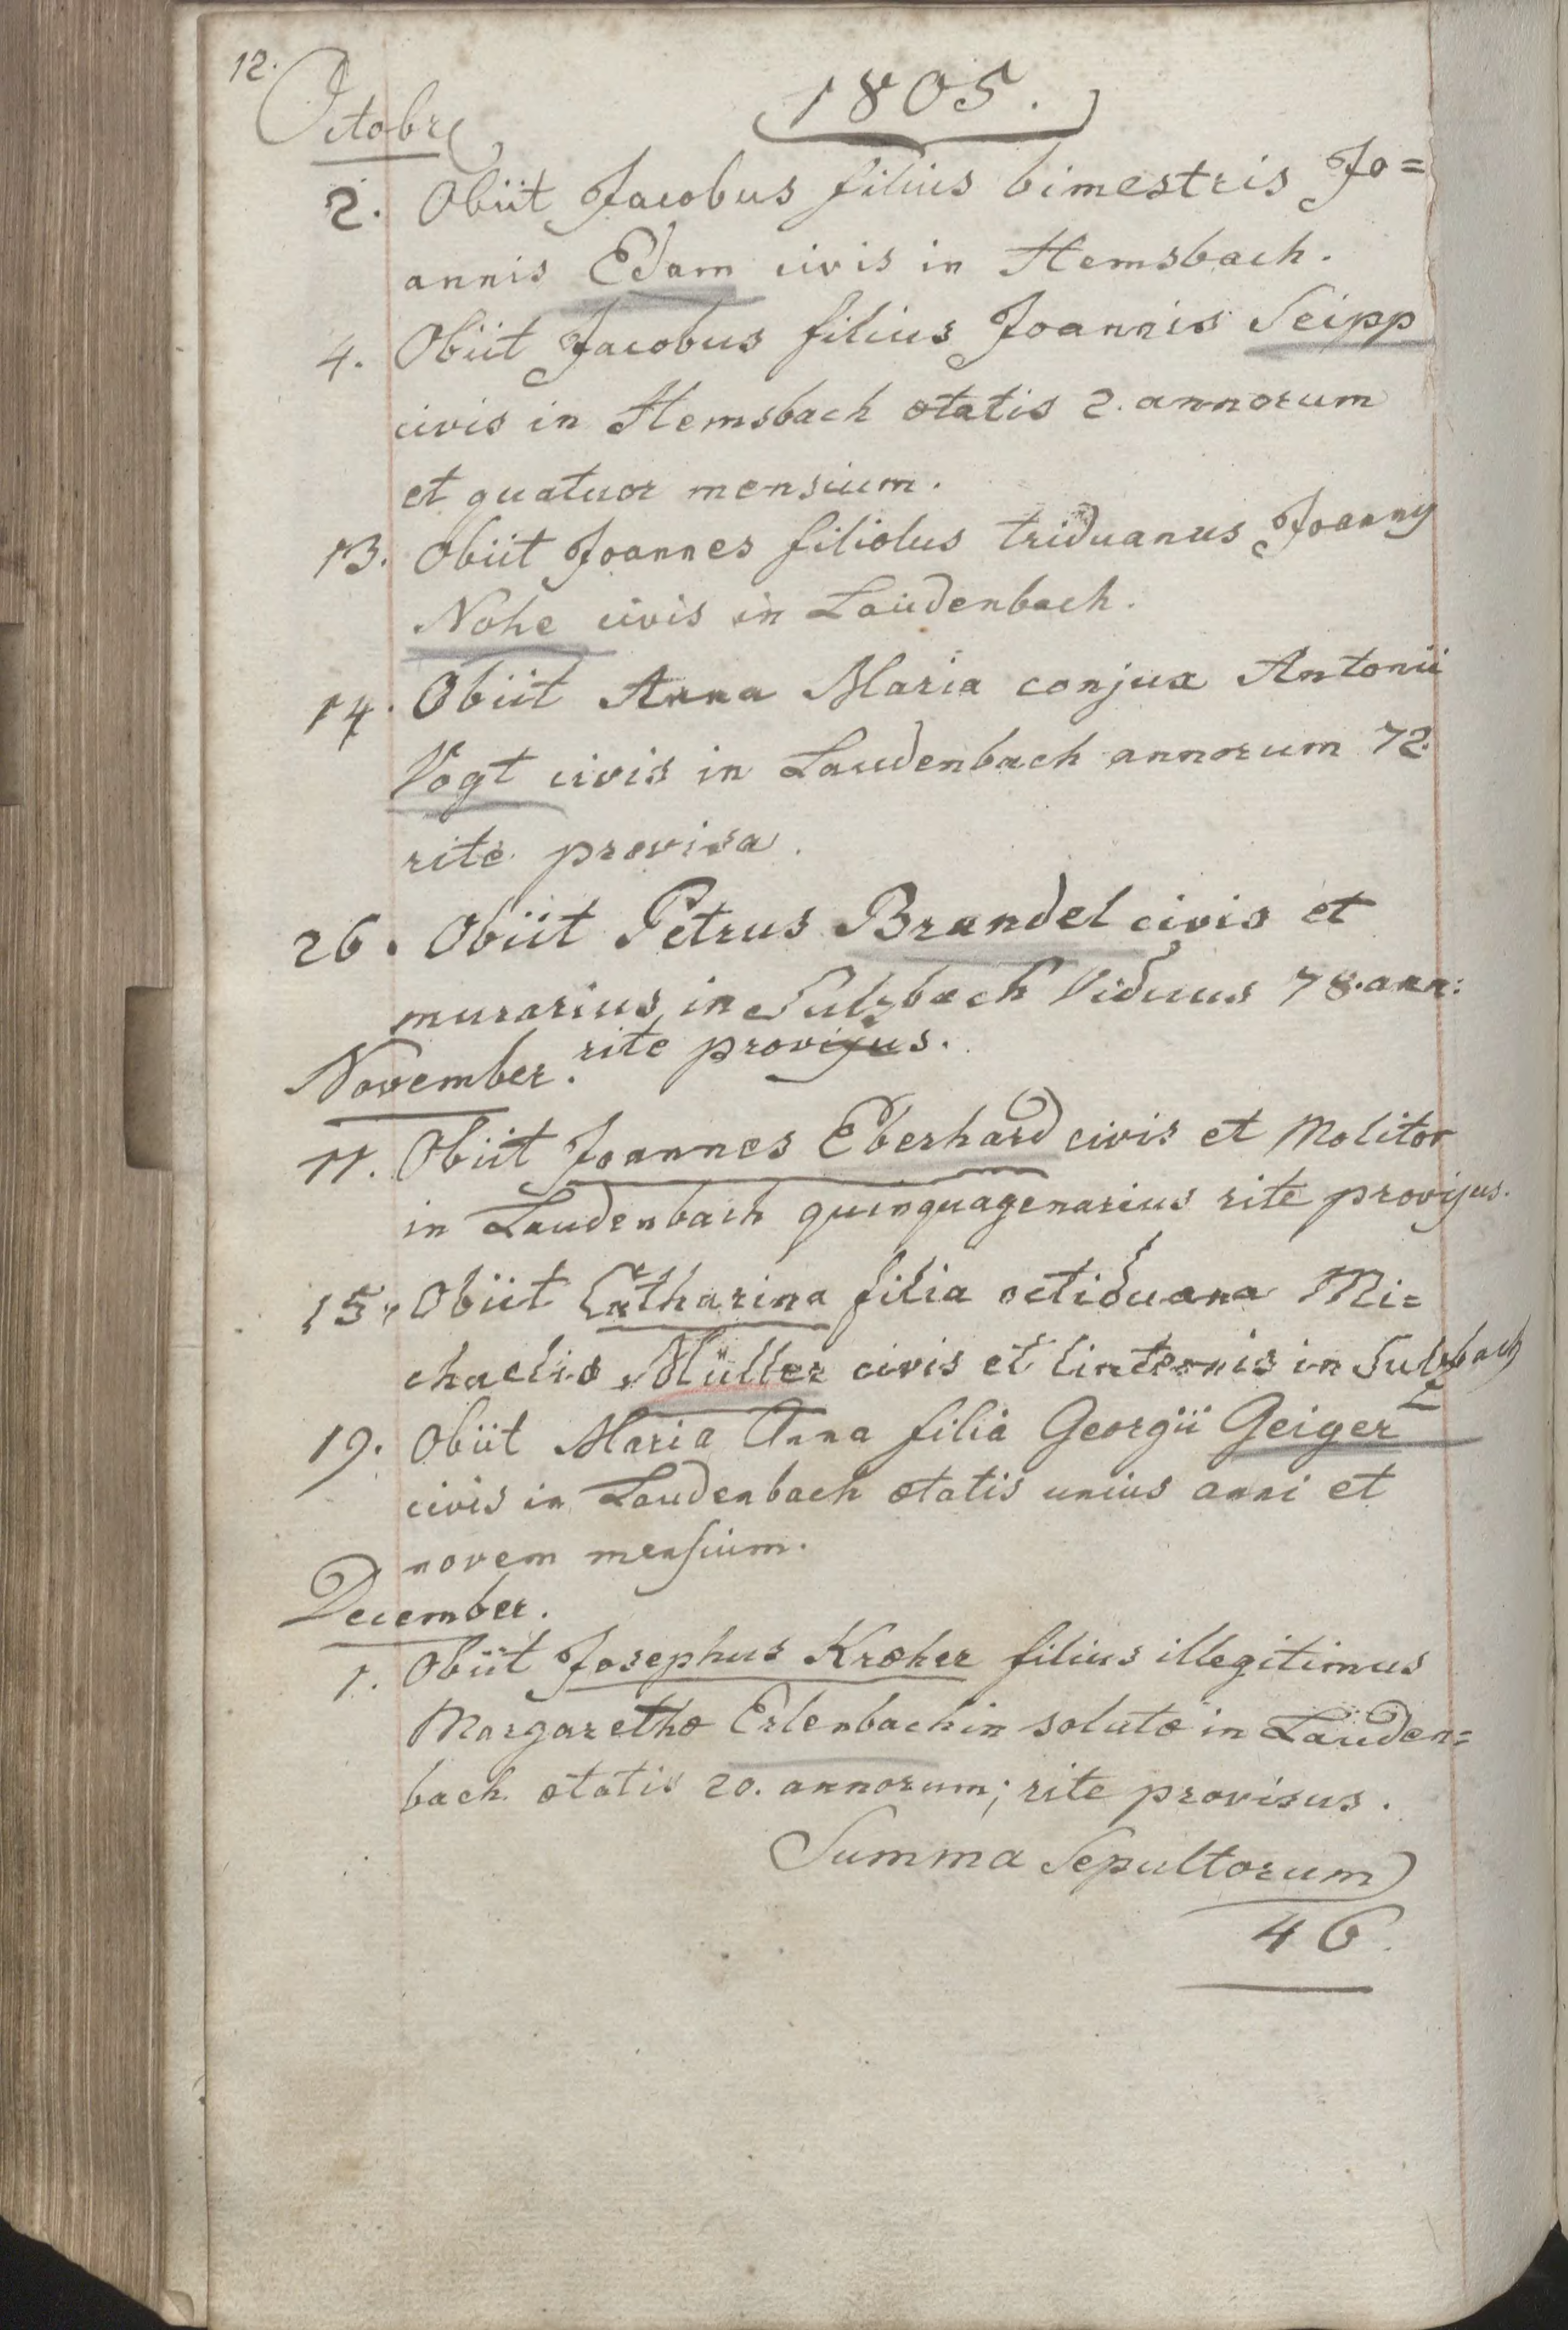 12.
1805.
Octobre
2. Obiit Jacobus filius bimestris Jo=
annis Edam civis in Hemsbach.
4. Obiit Jacobus filius Joannis Seipp
civis in Hemsbach ætatis 2. annorum
et quatuor mensium.
13. Obiit Joannes filiolus triduanus Joannis
Nohe civis in Laüdenbach.
14. Obiit Anna Maria conjux Antonii
Vogt civis in Laudenbach annorum 72.
rite provisa.
26. Obiit Petrus Brandel civis et
murarius in Sulzbach Viduus 78. ann:
rite provisus.
November.
11. Obiit Joannes Eberhard civis et Molitor
in Laudenbach quinquagenarius rite provisus.
15. Obiit Catharina filia octiduana Mi=
chaelis Müller civis et linteonis in Sulzbach
19. Obiit Maria Anna filia Georgii Geiger
civis in Laudenbach ætatis unius anni et
novem mensium.
December.
1. Obiit Josephus Kræher filius illegitimus
Margarethæ Erlenbachin solutæ in Laüden=
bach ætatis 20. annorum; rite provisus.
Summa Sepultorum
46.